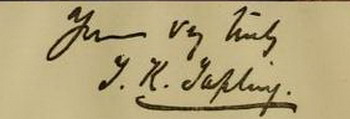 Yours very truly
T. K. Tapling.